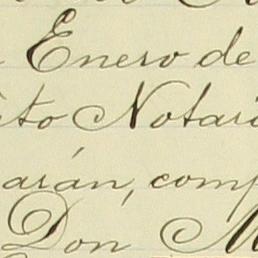 Enero de
to Notari
arán, comp
Don M